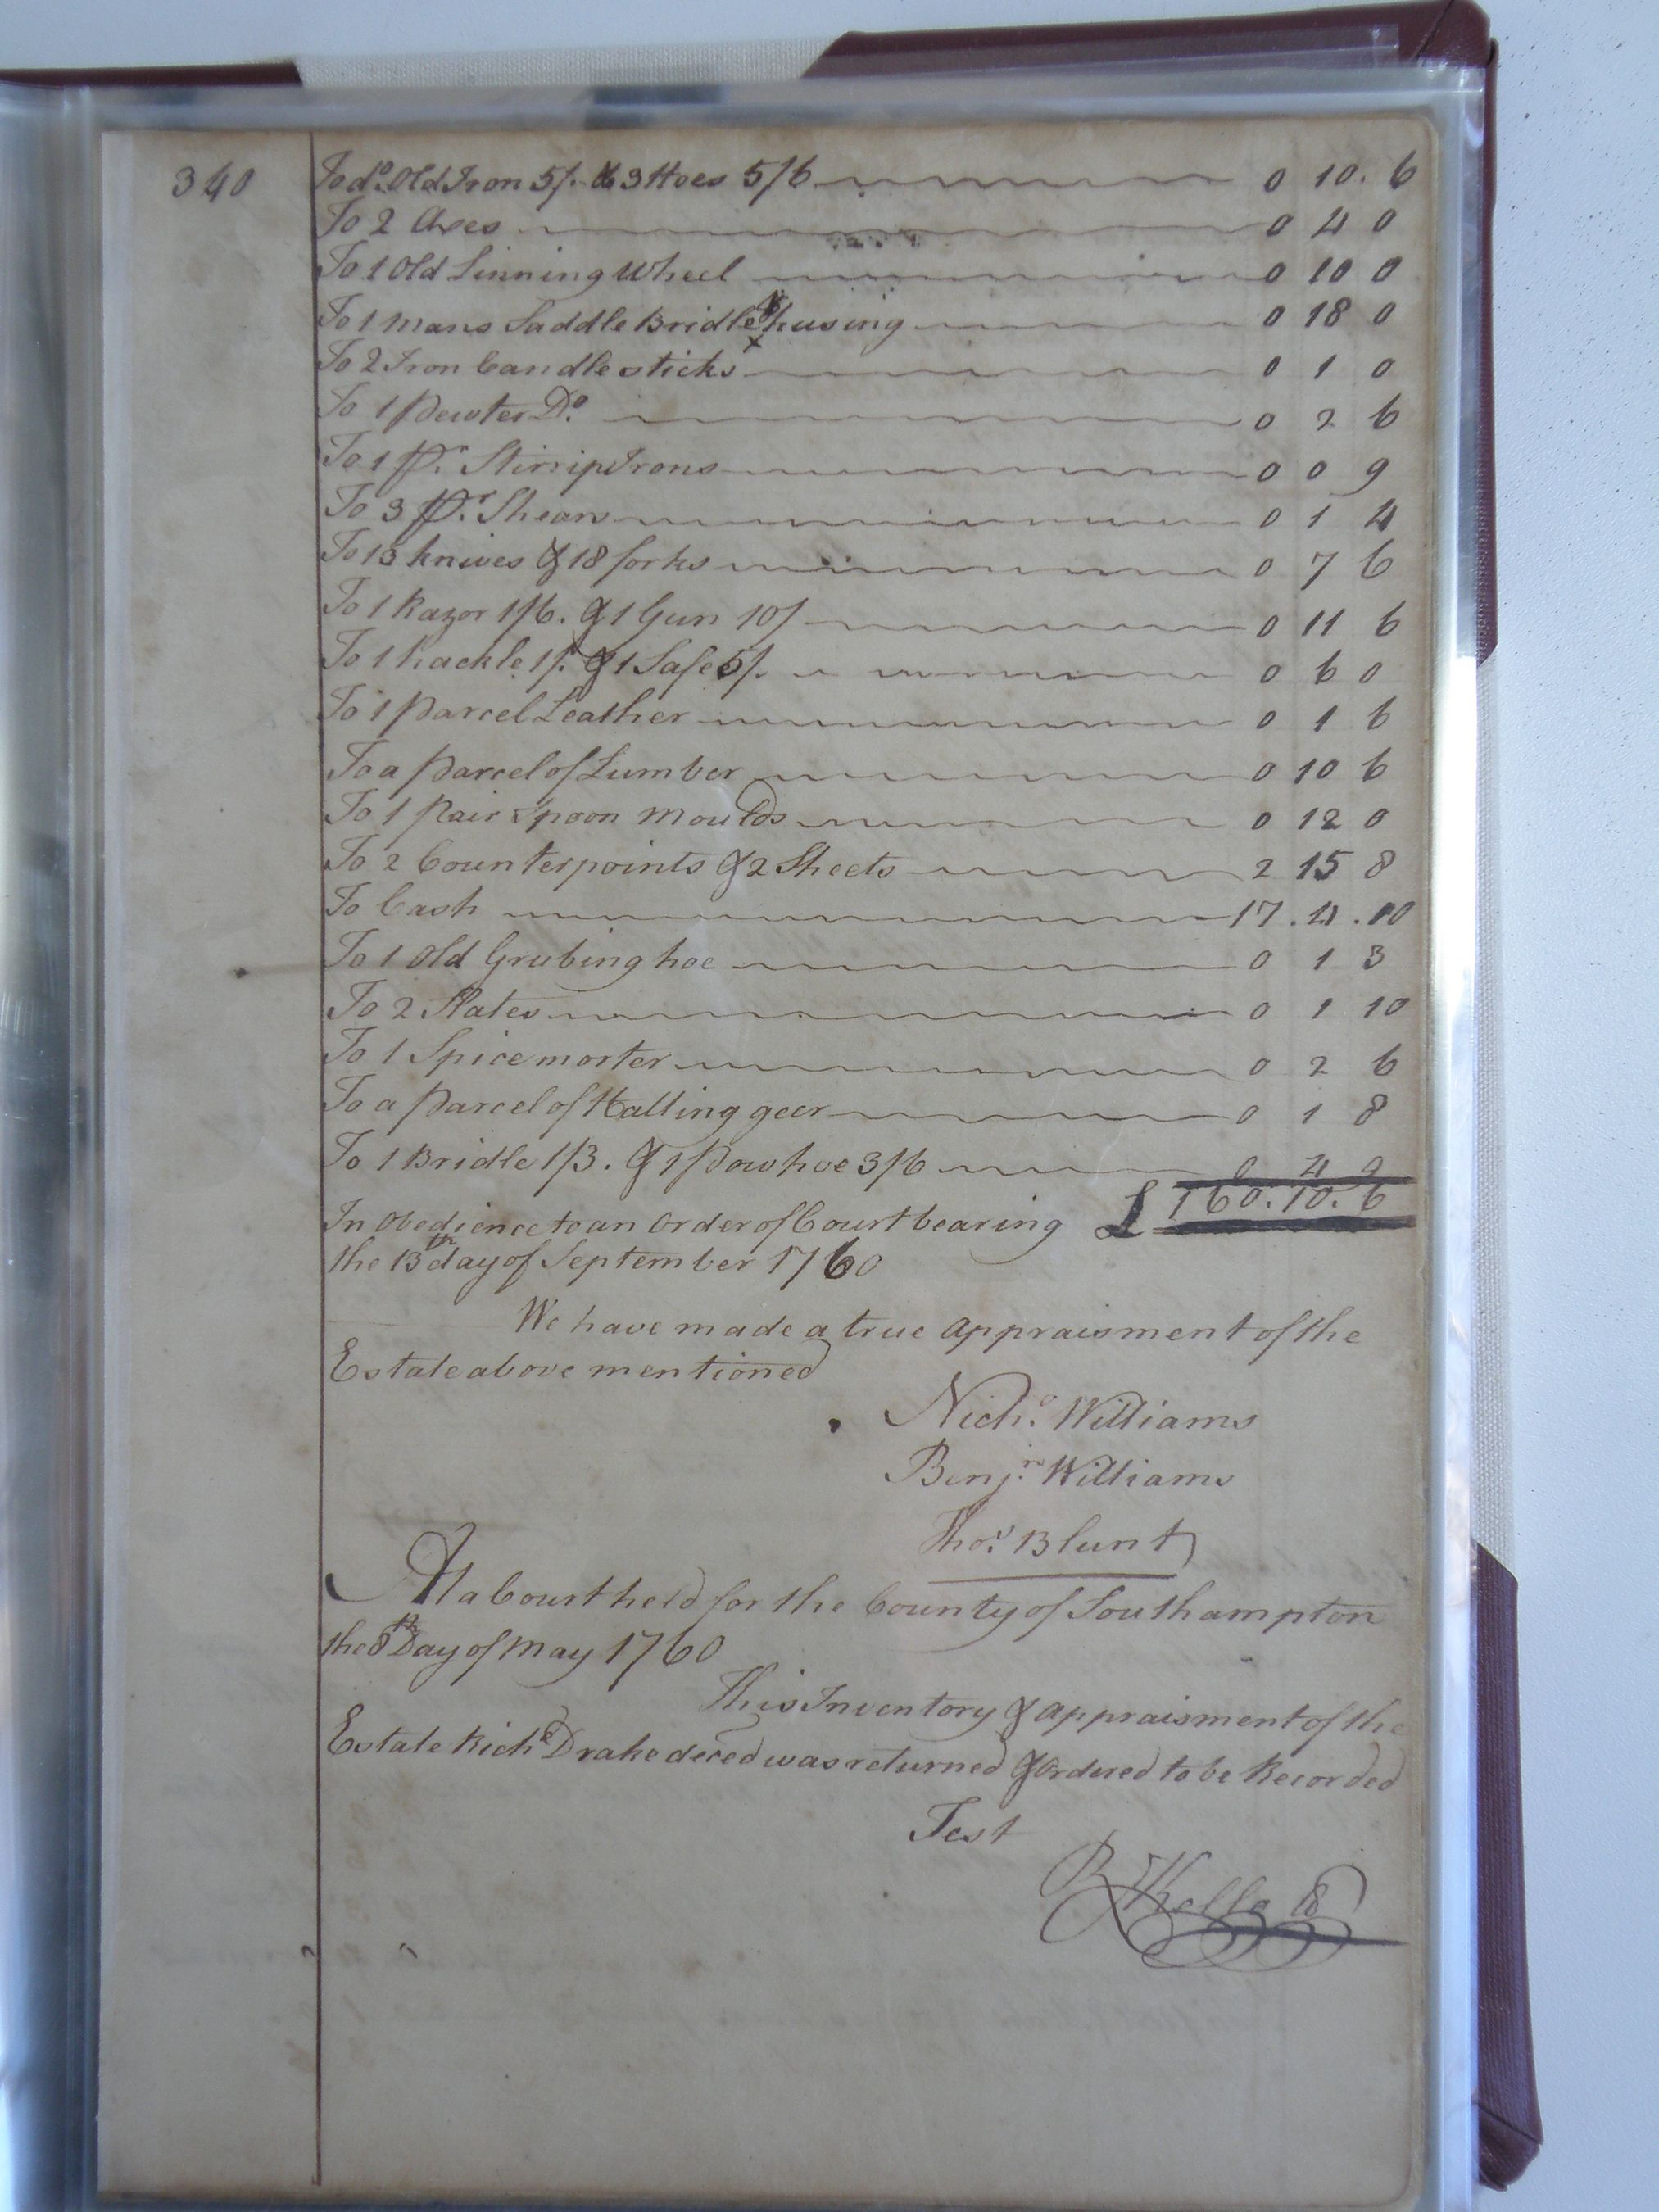 340
To do. Old Iron 5/. & 3 Hoes 5/6 0 10. 6
To 2 Axes 0 4 0
To 1 Old Linning Wheel 0 10 0
To 1 mans Saddle Bridle & husing 0 18 0
To 2 Iron Candlesticks 0 1 0
To 1 Pewter Do. 0 2 6
To 1 pr. Stirrip Irons 0 0 9
To 3 pr. Shears 0 1 4
To 13 knives & 18 forks 0 7 6
To 1 Razor 1/6. & 1 Gun 10/ 0 11 6
To 1 hackle 1/. & 1 Safe 5/. 0 6 0
To 1 parcel Leather 0 1 6
To a parcel of Lumber 0 10 6
To 1 Pair Spoon Moulds 0 12 0
To 2 Counterpoints & 2 Sheets 2 15 8
To Cash 17. 4. 10
To 1 Old Grubing hoe 0 1 3
To 2 Slates 0 1 10
To 1 Spice morter 0 2 6
To a parcel of Halling geer 0 1 8
To 1 Bridle 1/3. & 1 Pow hoe 3/6 0 4 9
£ 160. 10. 6
In Obedience to an Order of Court bearing
the 13th day of September 1760
We have made a true appraisment of the
Estate above mentioned
Nicho. Williams
Benjn. Williams
Thos. Blunt
At a Court held for the County of Southampton
the 8th Day of May 1760
This Inventory & appraisment of the
Estate Richd Drake deced was returned & Ordered to be Recorded
Test
R Kello